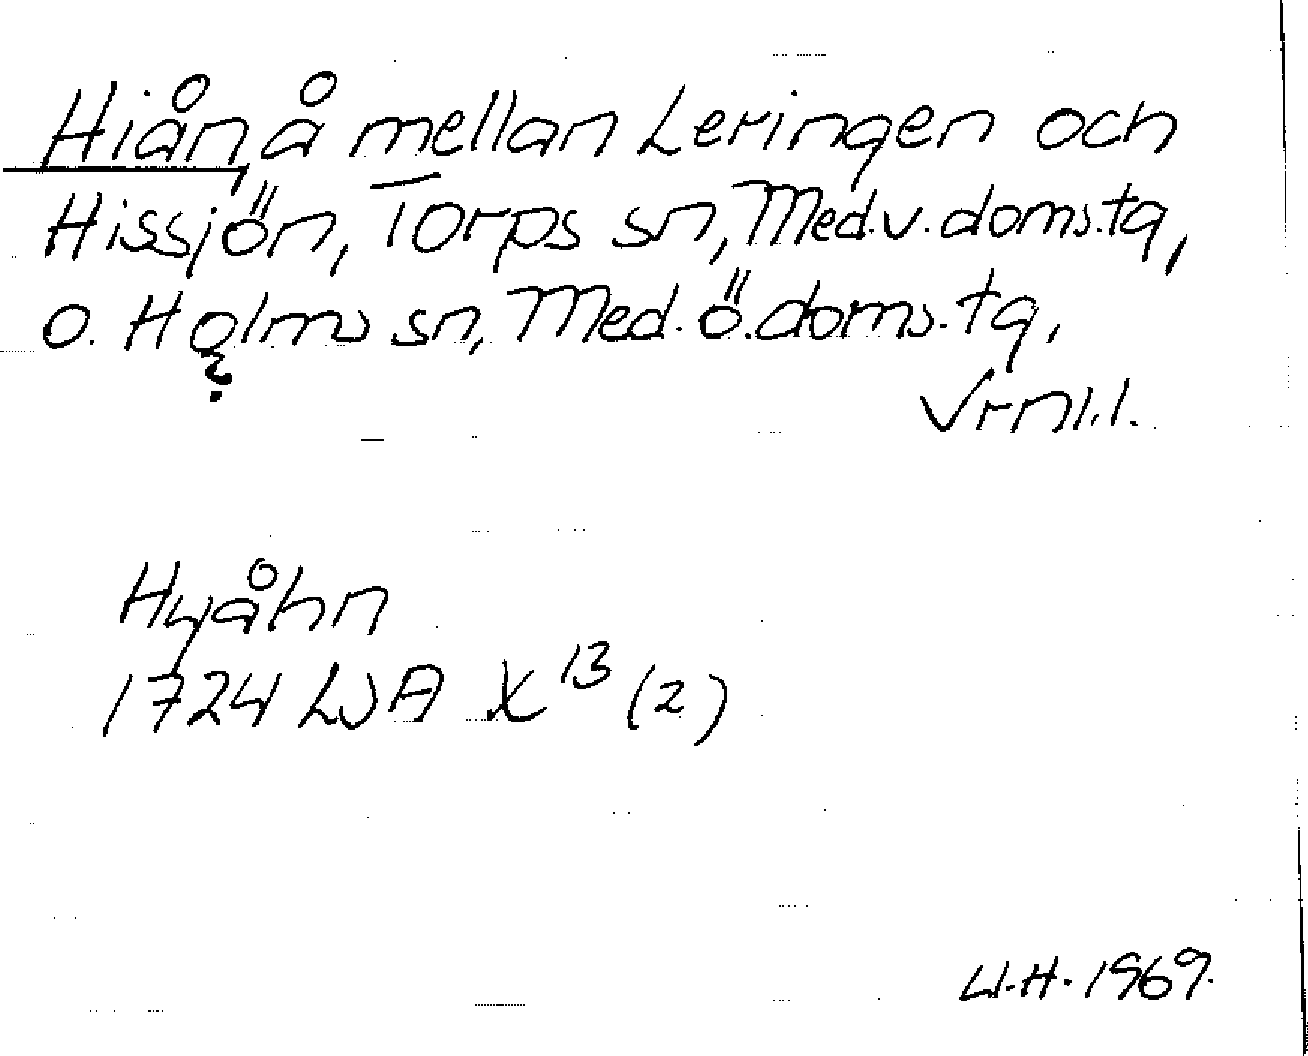 Hiån, å mellan Leringen och
Hissjön, Torps sn, Med.v.doms.tg,
o. Holms sn, Med.ö.doms.tg,
?
Vrnl.l.
Hyåhn
1724 LSA X¹³ (2)